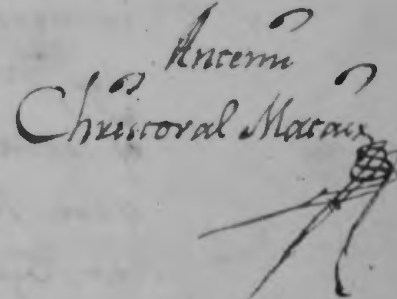 Antemi
Christoval Macaia